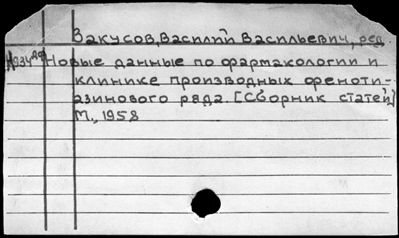 Закусов, Василий Васильевич, ред.
Новые данные по фармакологии и
клинике производных феноти-
азинового ряда. [Сборник статей]
М., 1958